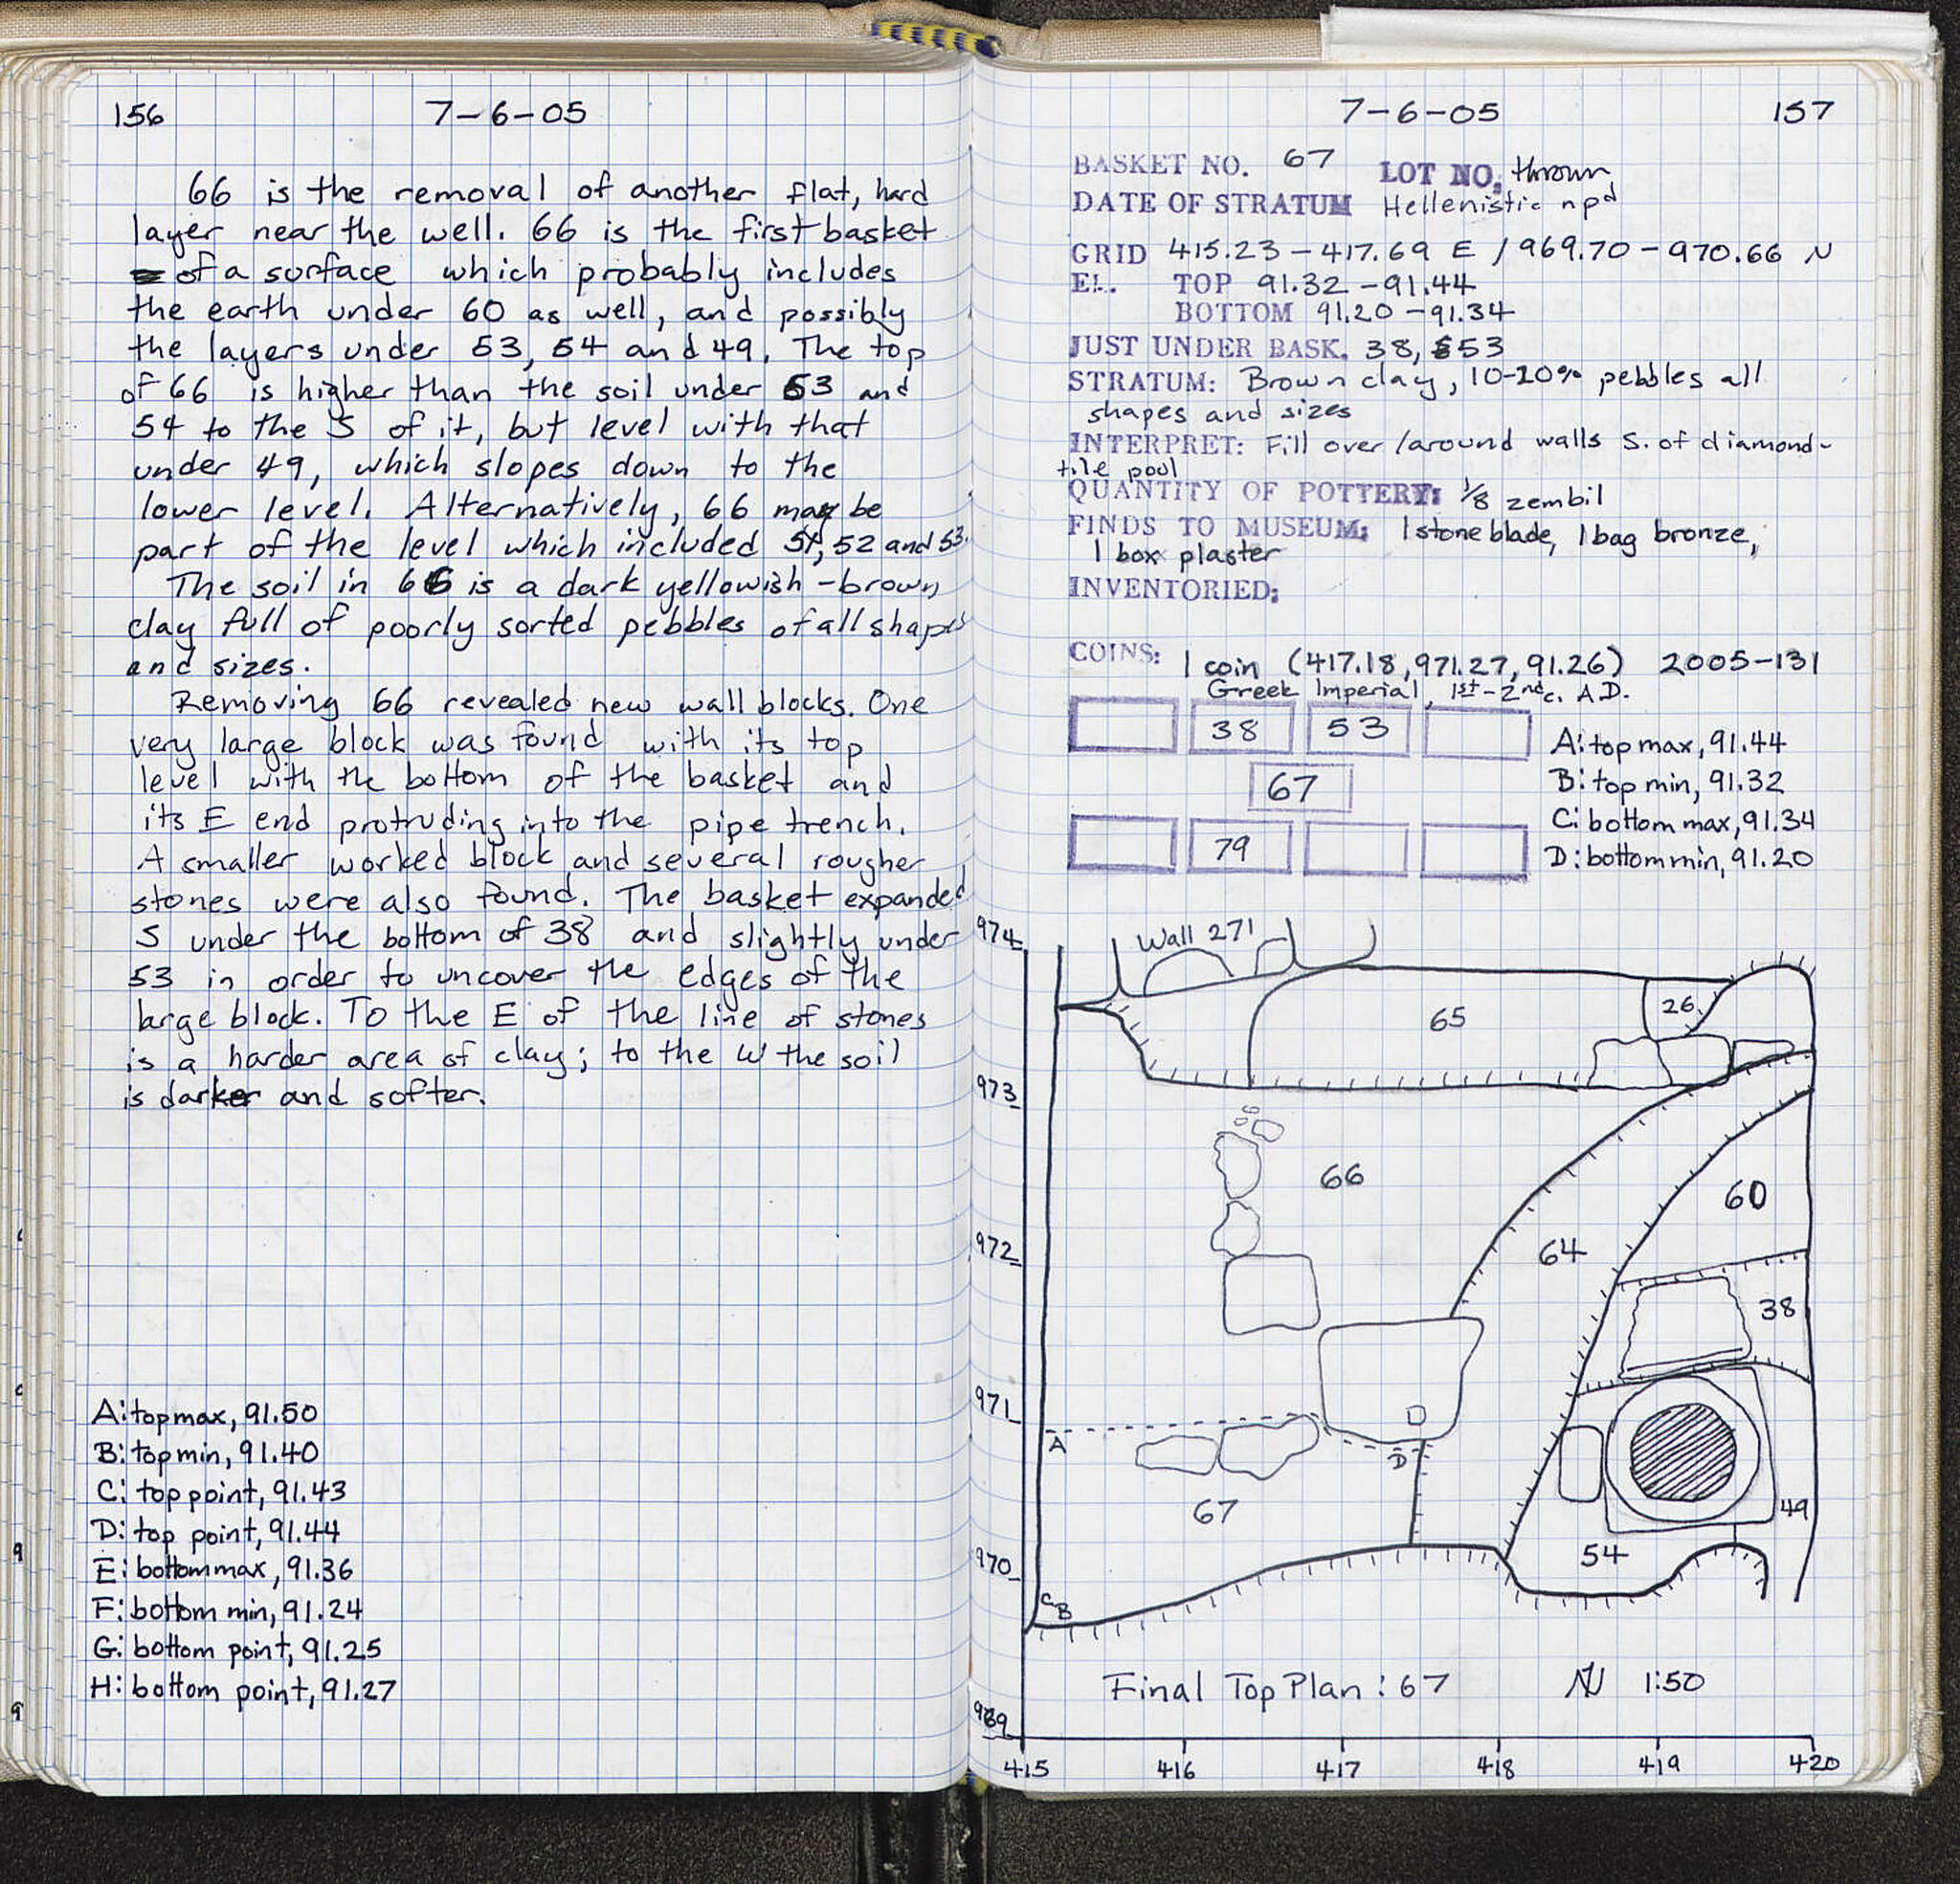 156 7-6-05
66 is the removal of another flat, hard
layer near the well. 66 is the first basket
of a surface which probably includes
the earth under 60 as well, and possibly
the layers under 53, 54 and 49. The top
of 66 is higher than the soil under 53 and
54 to the S of it, but level with that
under 49, which slopes down to the
lower level. Alternatively, 66 may be
part of the level which included 51, 52 and 53.
The soil in 66 is a dark yellowish-brown
clay full of poorly sorted pebbles of all shapes
and sizes.
Removing 66 revealed new wall blocks. One
very large block was found with its top
level with the bottom of the basket and
its E end protruding into the pipe trench.
A smaller worked block and several rougher
stones were also found. The basket expanded
S under the bottom of 38 and slightly under
53 in order to uncover the edges of the
large block. To the E of the line of stones
is a harder area of clay; to the W the soil
is darker and softer.
A: top max, 91.50
B: top min, 91.40
C: top point, 91.43
D: top point, 91.44
E: bottom max, 91.36
F: bottom min, 91.24
G: bottom point, 91.25
H: bottom point, 91.27
7-6-05 157
BASKET NO. 67 LOT NO. thrown
DATE OF STRATUM Hellenistic npd
GRID 415.23-417.69 E / 969.70-970.66 N
EL. TOP 91.32-91.44
BOTTOM 91.20-91.34
JUST UNDER BASK. 38, 53
STRATUM: Brown clay, 10-20% pebbles all
shapes and sizes
INTERPRET: Fill over/around walls S. of diamond-
tile pool
QUANTITY OF POTTERY: 1/8 zembil
FINDS TO MUSEUM: 1 stone blade, 1 bag bronze,
1 box plaster
INVENTORIED:
COINS: 1 coin (417.18, 971.27, 91.26) 2005-131
Greek Imperial, 1st-2nd c. A.D.
38 53
67
79
A: top max, 91.44
B: top min, 91.32
C: bottom max, 91.34
D: bottom min, 91.20
974
Wall 271
65
26
973
66
60
972
64
38
971
D
A
D
67
49
970
54
C
B
Final Top Plan: 67 N 1:50
969
415 416 417 418 419 420